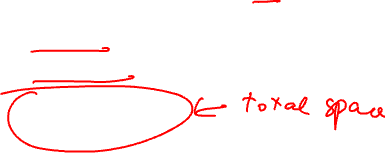 ← total space